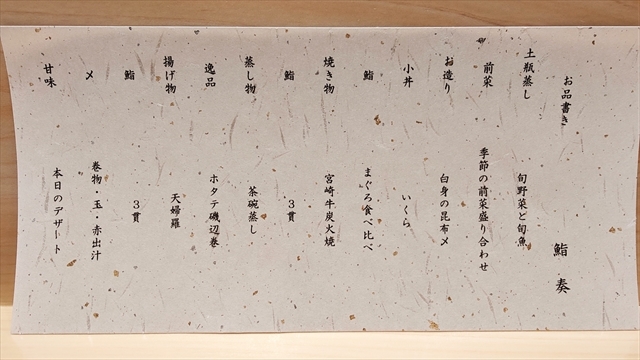 お品書き
鮨 奏
土瓶蒸し 旬野菜と旬魚
前菜 季節の前菜盛り合わせ
お造り 白身の昆布〆
小丼 いくら
鮨 まぐろ食べ比べ
焼き物 宮崎牛炭火焼
鮨 3貫
蒸し物 茶碗蒸し
逸品 ホタテ磯辺巻
揚げ物 天婦羅
鮨 3貫
〆 巻物・玉・赤出汁
甘味 本日のデザート